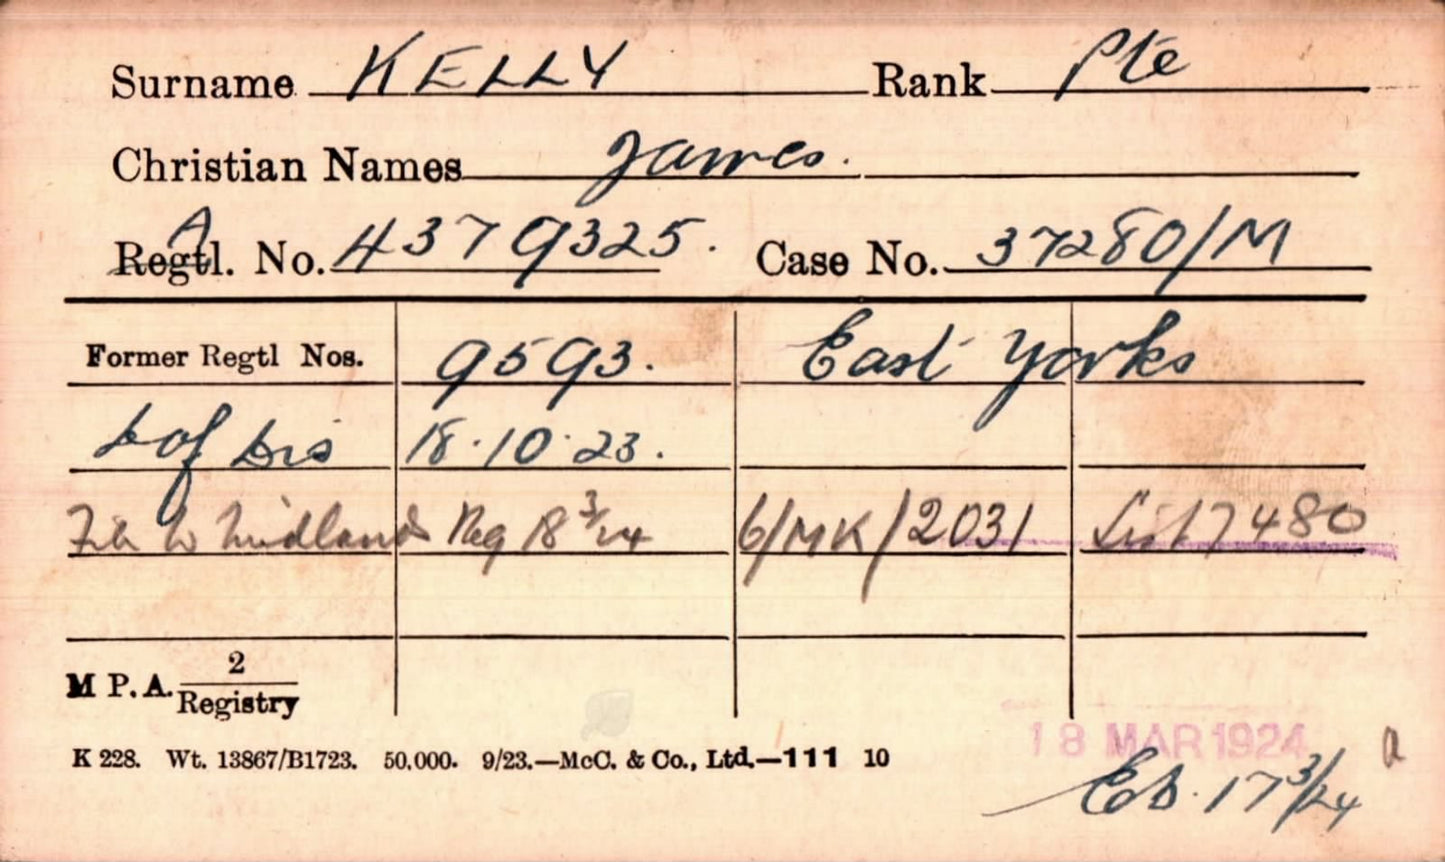 Surname KELLY Rank Pte
Christian Names James.
A
Regtl. No. 4379325. Case No. 37280/M
Former Regtl Nos. 9593. East Yorks
D of Dis 18.10.23.
File to Midlands Reg 18 3/24 6/MK/2031 List 7480
M P.A. 2/Registry
K 228. Wt. 13867/B1723. 50,000. 9/23.—McC. & Co., Ltd.—111 10
18 MAR 1924 a
17 3/24